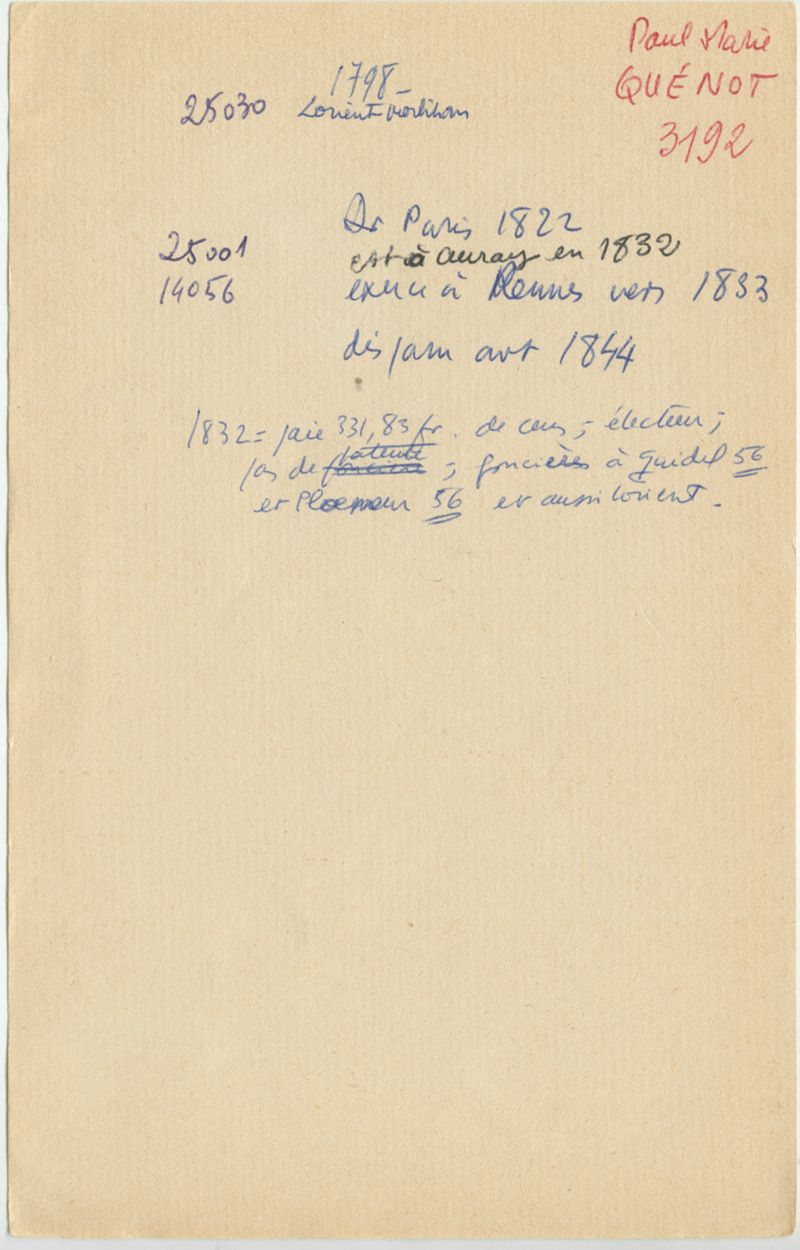 Paul Marie
QUÉNOT
3192
1798_
25030 Lorient Morbihan
Dr Paris 1822
25001 est à Auray en 1832
14056 exerce à Rennes vers 1833
disparu avt 1844
1832 = paie 331,83 fr. de cens ; électeur ;
patente
pas de foncière ; foncières à Guidel 56
et Ploemeur 56 et aussi Lorient.